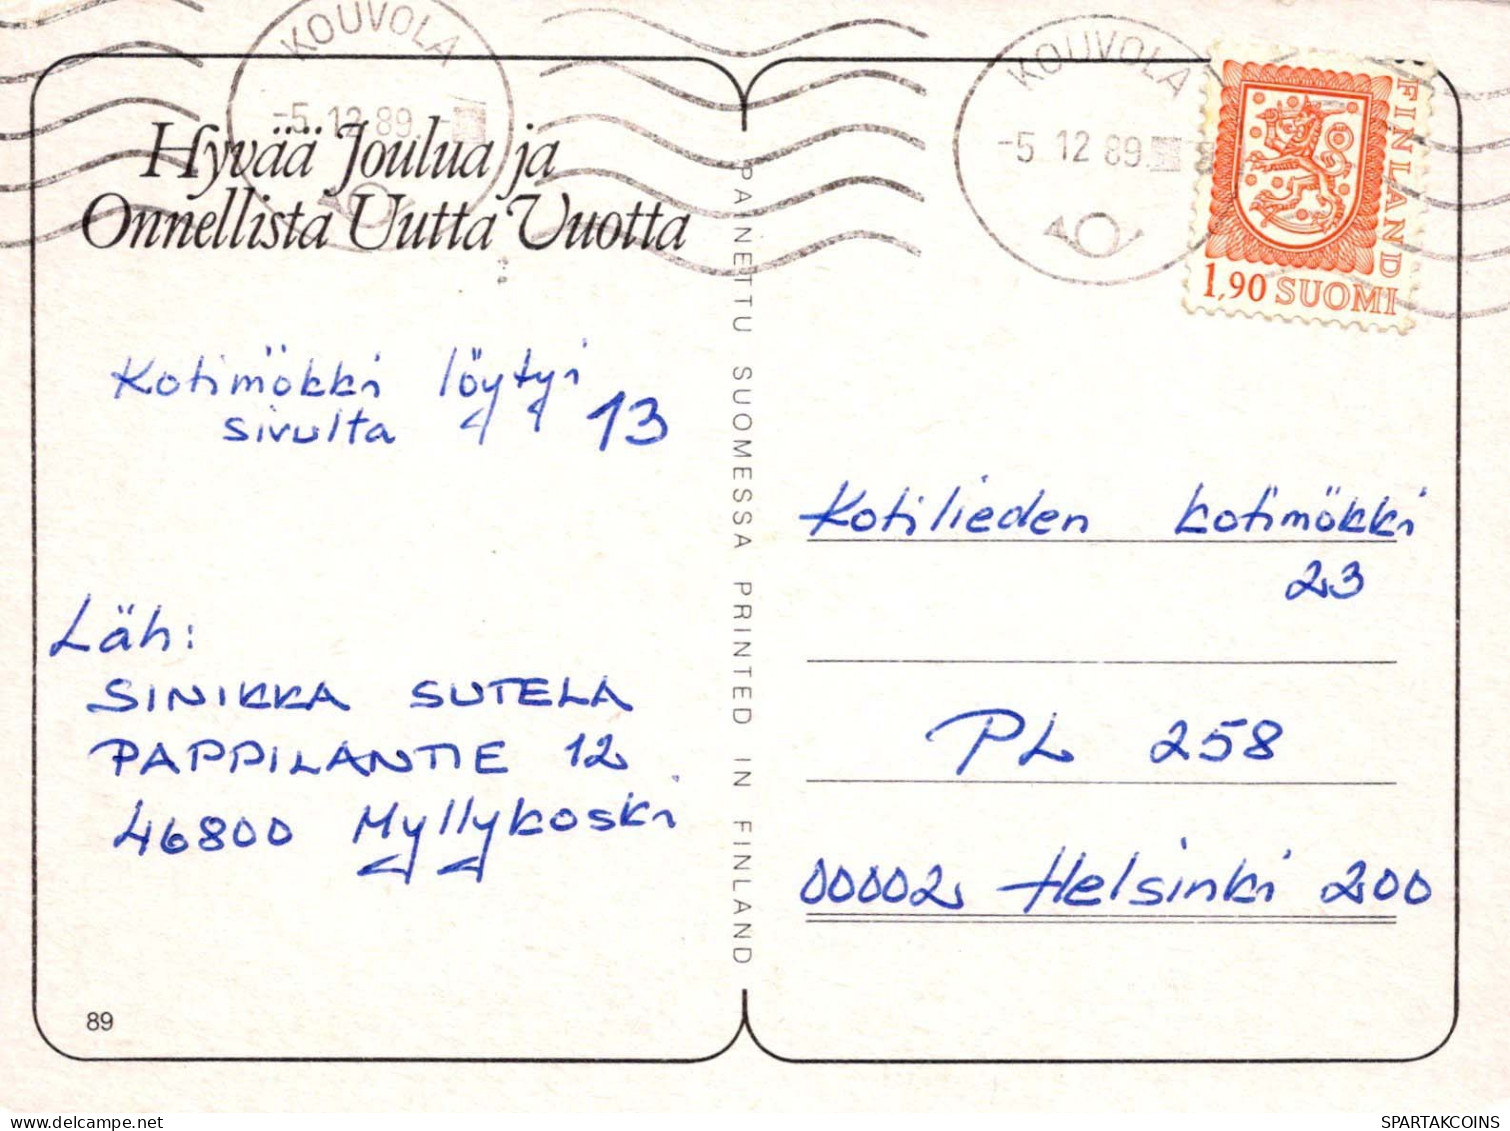 KOUVOLA
-5.12.89.-
KOUVOLA
-5.12.89.
FINLAND
1,90 SUOMI
Hyvää Joulua ja
Onnellista Uutta Vuotta
Kotimökki löytyi
sivulta 13
Läh:
SINIKKA SUTELA
PAPPILANTIE 12
46800 Myllykoski
89
PAINETTU SUOMESSA PRINTED IN FINLAND
Kotilieden kotimökki
23
PL 258
00002 Helsinki 200
SPARTAKCOINS
delcampe.net